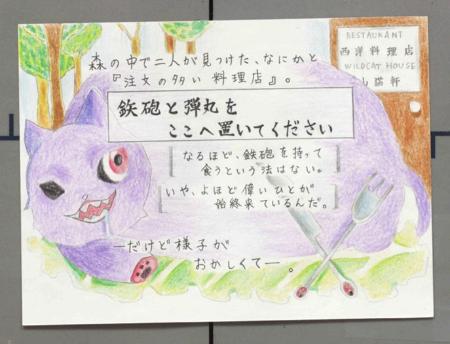 RESTAURANT
西洋料理店
WILDCAT HOUSE
山猫軒
森の中で二人が見つけた、なにかと
『注文の多い料理店』。
鉄砲と弾丸を
ここへ置いてください
なるほど、鉄砲を持って
食うという法はない。
いや、よほど偉いひとが
始終来ているんだ。
―だけど様子が
おかしくて―。